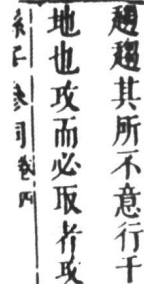 趨趨其所不意行千
地也攻而必取者攻